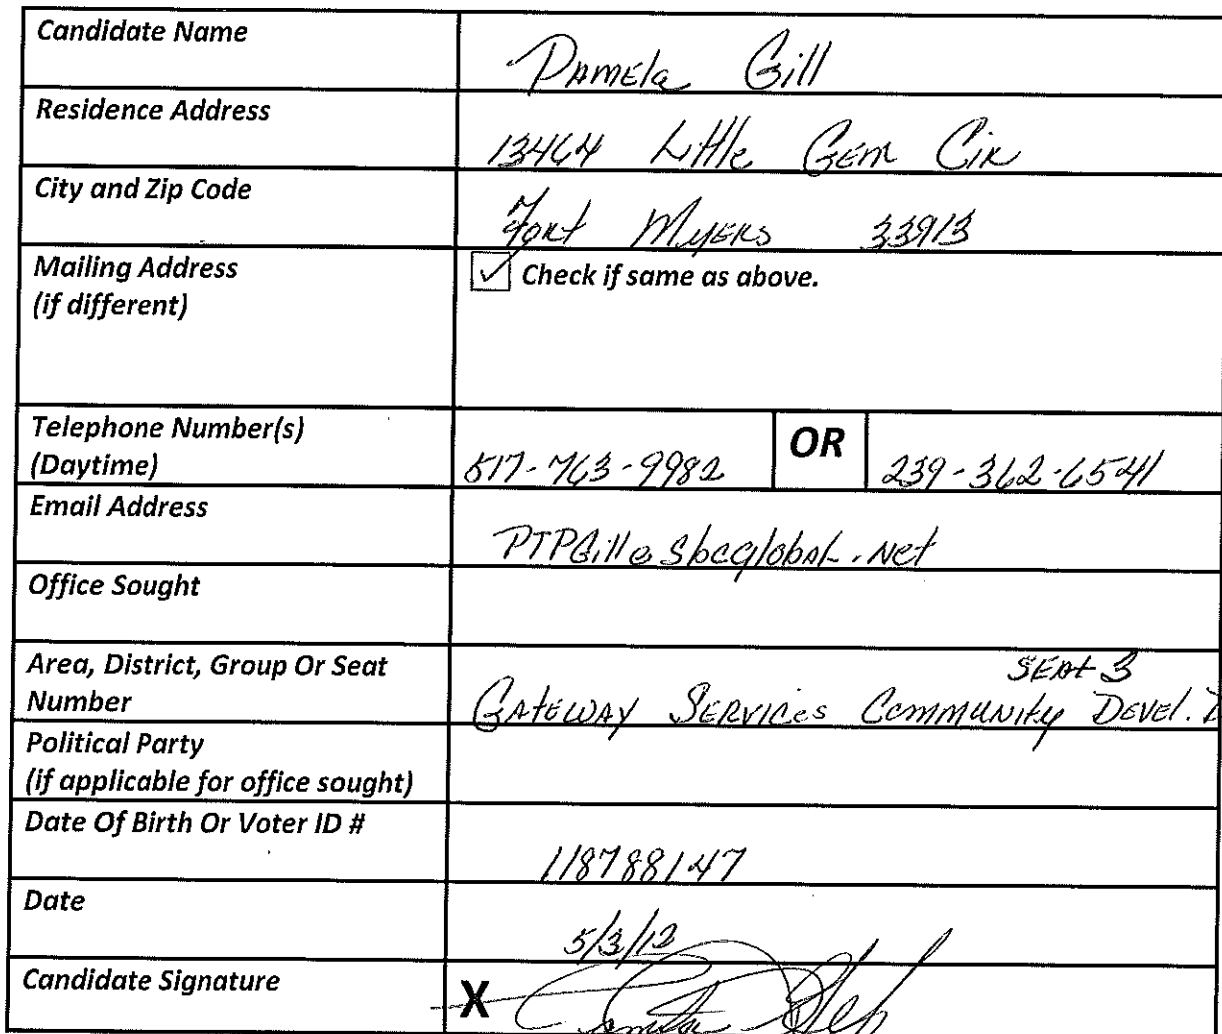 Candidate Name
Pamela Gill
Residence Address
13464 Little Gem Cir
City and Zip Code
Fort Myers 33913
Mailing Address
(if different)
Check if same as above.
Telephone Number(s)
(Daytime)
517-763-9982 OR 239-362-6541
Email Address
PTPGill@sbcglobal.net
Office Sought
Area, District, Group Or Seat
Number
SEAT 3
Gateway Services Community Devel.
Political Party
(if applicable for office sought)
Date Of Birth Or Voter ID #
118788147
Date
5/3/12
Candidate Signature
X